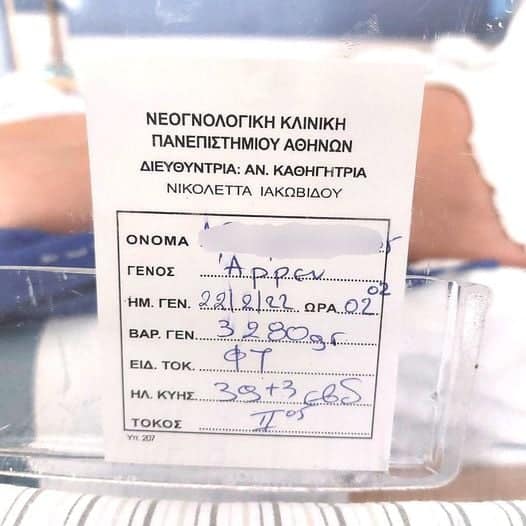 ΝΕΟΓΝΟΛΟΓΙΚΗ ΚΛΙΝΙΚΗ
ΠΑΝΕΠΙΣΤΗΜΙΟΥ ΑΘΗΝΩΝ
ΔΙΕΥΘΥΝΤΡΙΑ: ΑΝ. ΚΑΘΗΓΗΤΡΙΑ
ΝΙΚΟΛΕΤΤΑ ΙΑΚΩΒΙΔΟΥ
ΟΝΟΜΑ
ΓΕΝΟΣ Άρρεν
ΗΜ. ΓΕΝ. 22/2/22 ΩΡΑ 02 02
ΒΑΡ. ΓΕΝ. 3280gr
ΕΙΔ. ΤΟΚ. ΦΤ
ΗΛ. ΚΥΗΣ. 39+3 εβδ
ΤΟΚΟΣ II ος
Υπ. 207